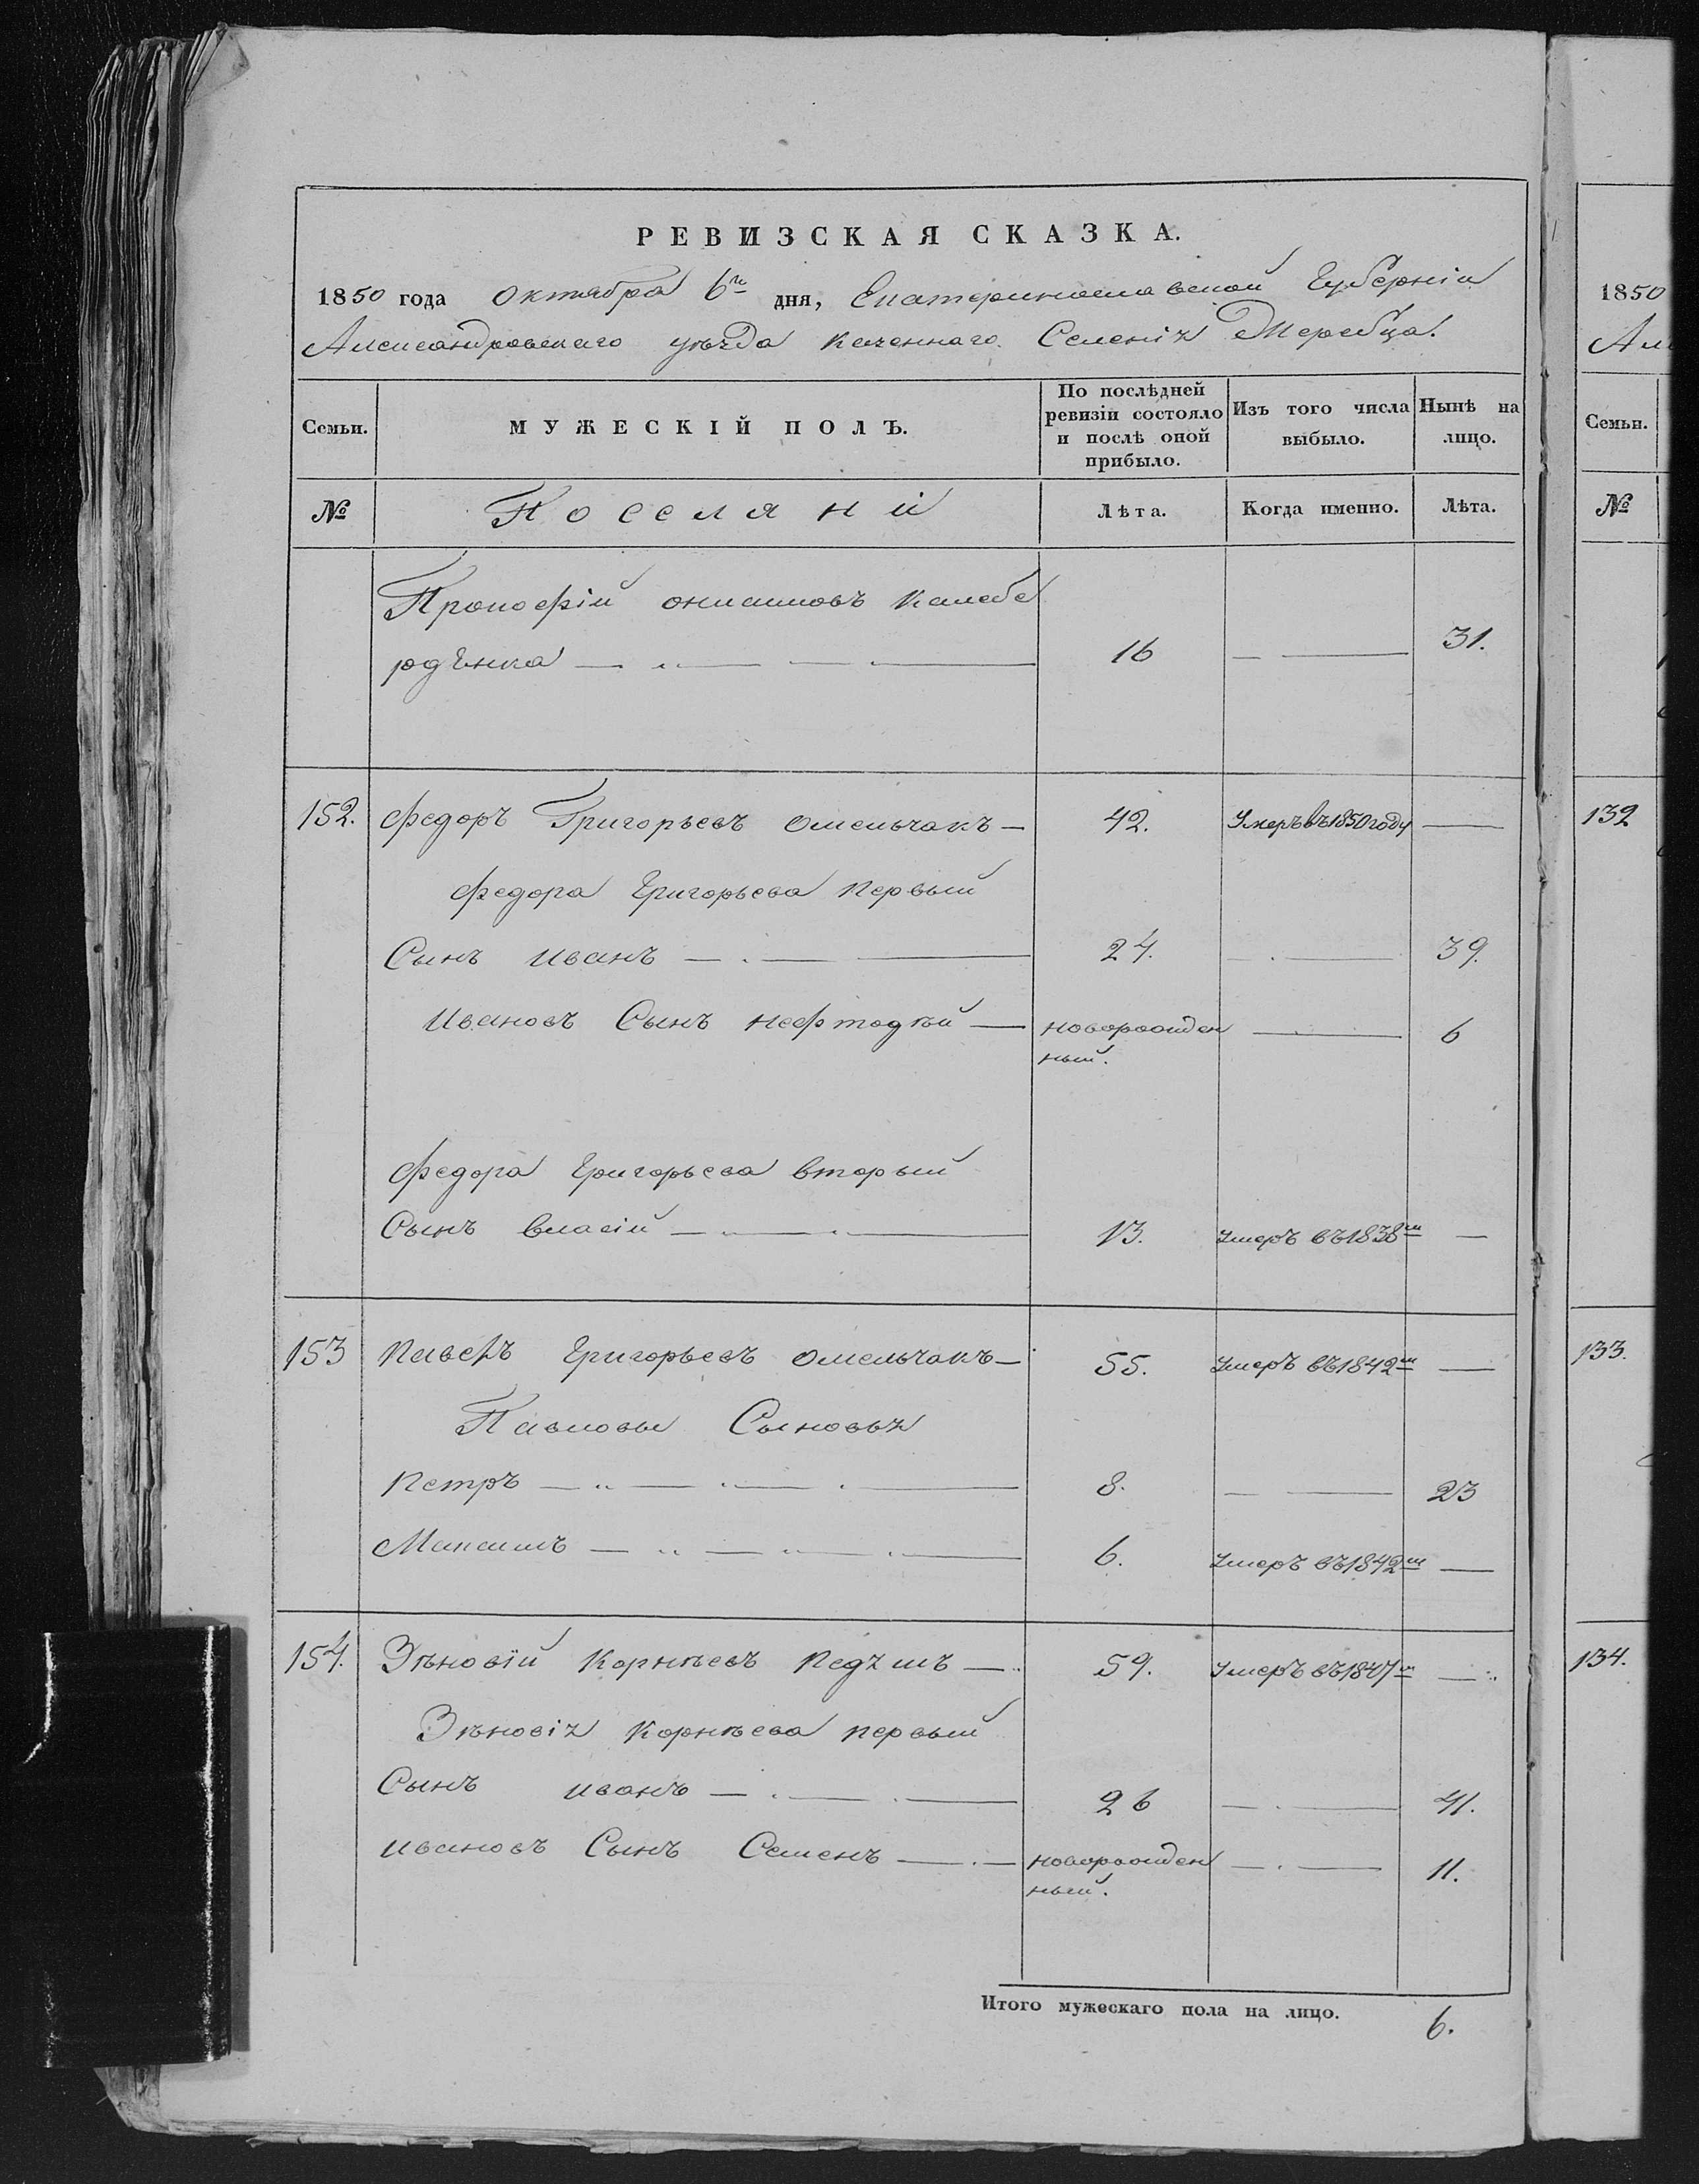 РЕВИЗСКАЯ СКАЗКА.
1850 года октября 6го дня, Екатеринославской Губерніи
Александровскаго уѣзда казеннаго Селенія Жеребца.
Семьи. МУЖЕСКІЙ ПОЛЪ. По послѣдней ревизіи состояло и послѣ оной прибыло. Изъ того числа выбыло. Нынѣ на лицо.
№ Поселяни Лѣта. Когда именно. Лѣта.
Прокофій
16 — 31.
152. Федоръ Григорьевъ Омельчакъ — 42. Умеръ въ 1850 году —
Федора Григорьева первый
Сынъ Иванъ — 24. — 39.
Ивановъ Сынъ Нефтодѣй — новорожден — 6
ный.
Федора Григорьева вторый
Сынъ Власій — 13. Умеръ въ 1838м —
153 Павелъ Григорьевъ Омельчакъ — 55. Умеръ въ 1842м —
Павловы Сыновья
Петръ — 8. — 23
Максимъ — 6. Умеръ въ 1842м —
154. Зѣновій Корнѣевъ — 59. Умеръ въ 1847м —
Зѣновія Корнѣева первый
Сынъ Иванъ — 26 — 41.
Ивановъ Сынъ Семенъ — новорожден — 11.
ный.
Итого мужескаго пола на лицо. 6.
1850
Семьи.
№
132
133.
134.